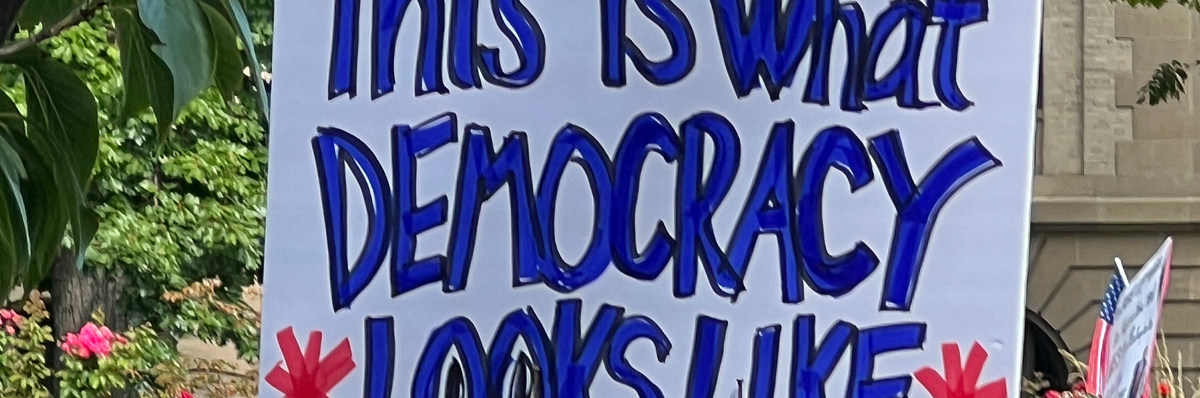 This Is What
DEMOCRACY
LOOKS LIKE